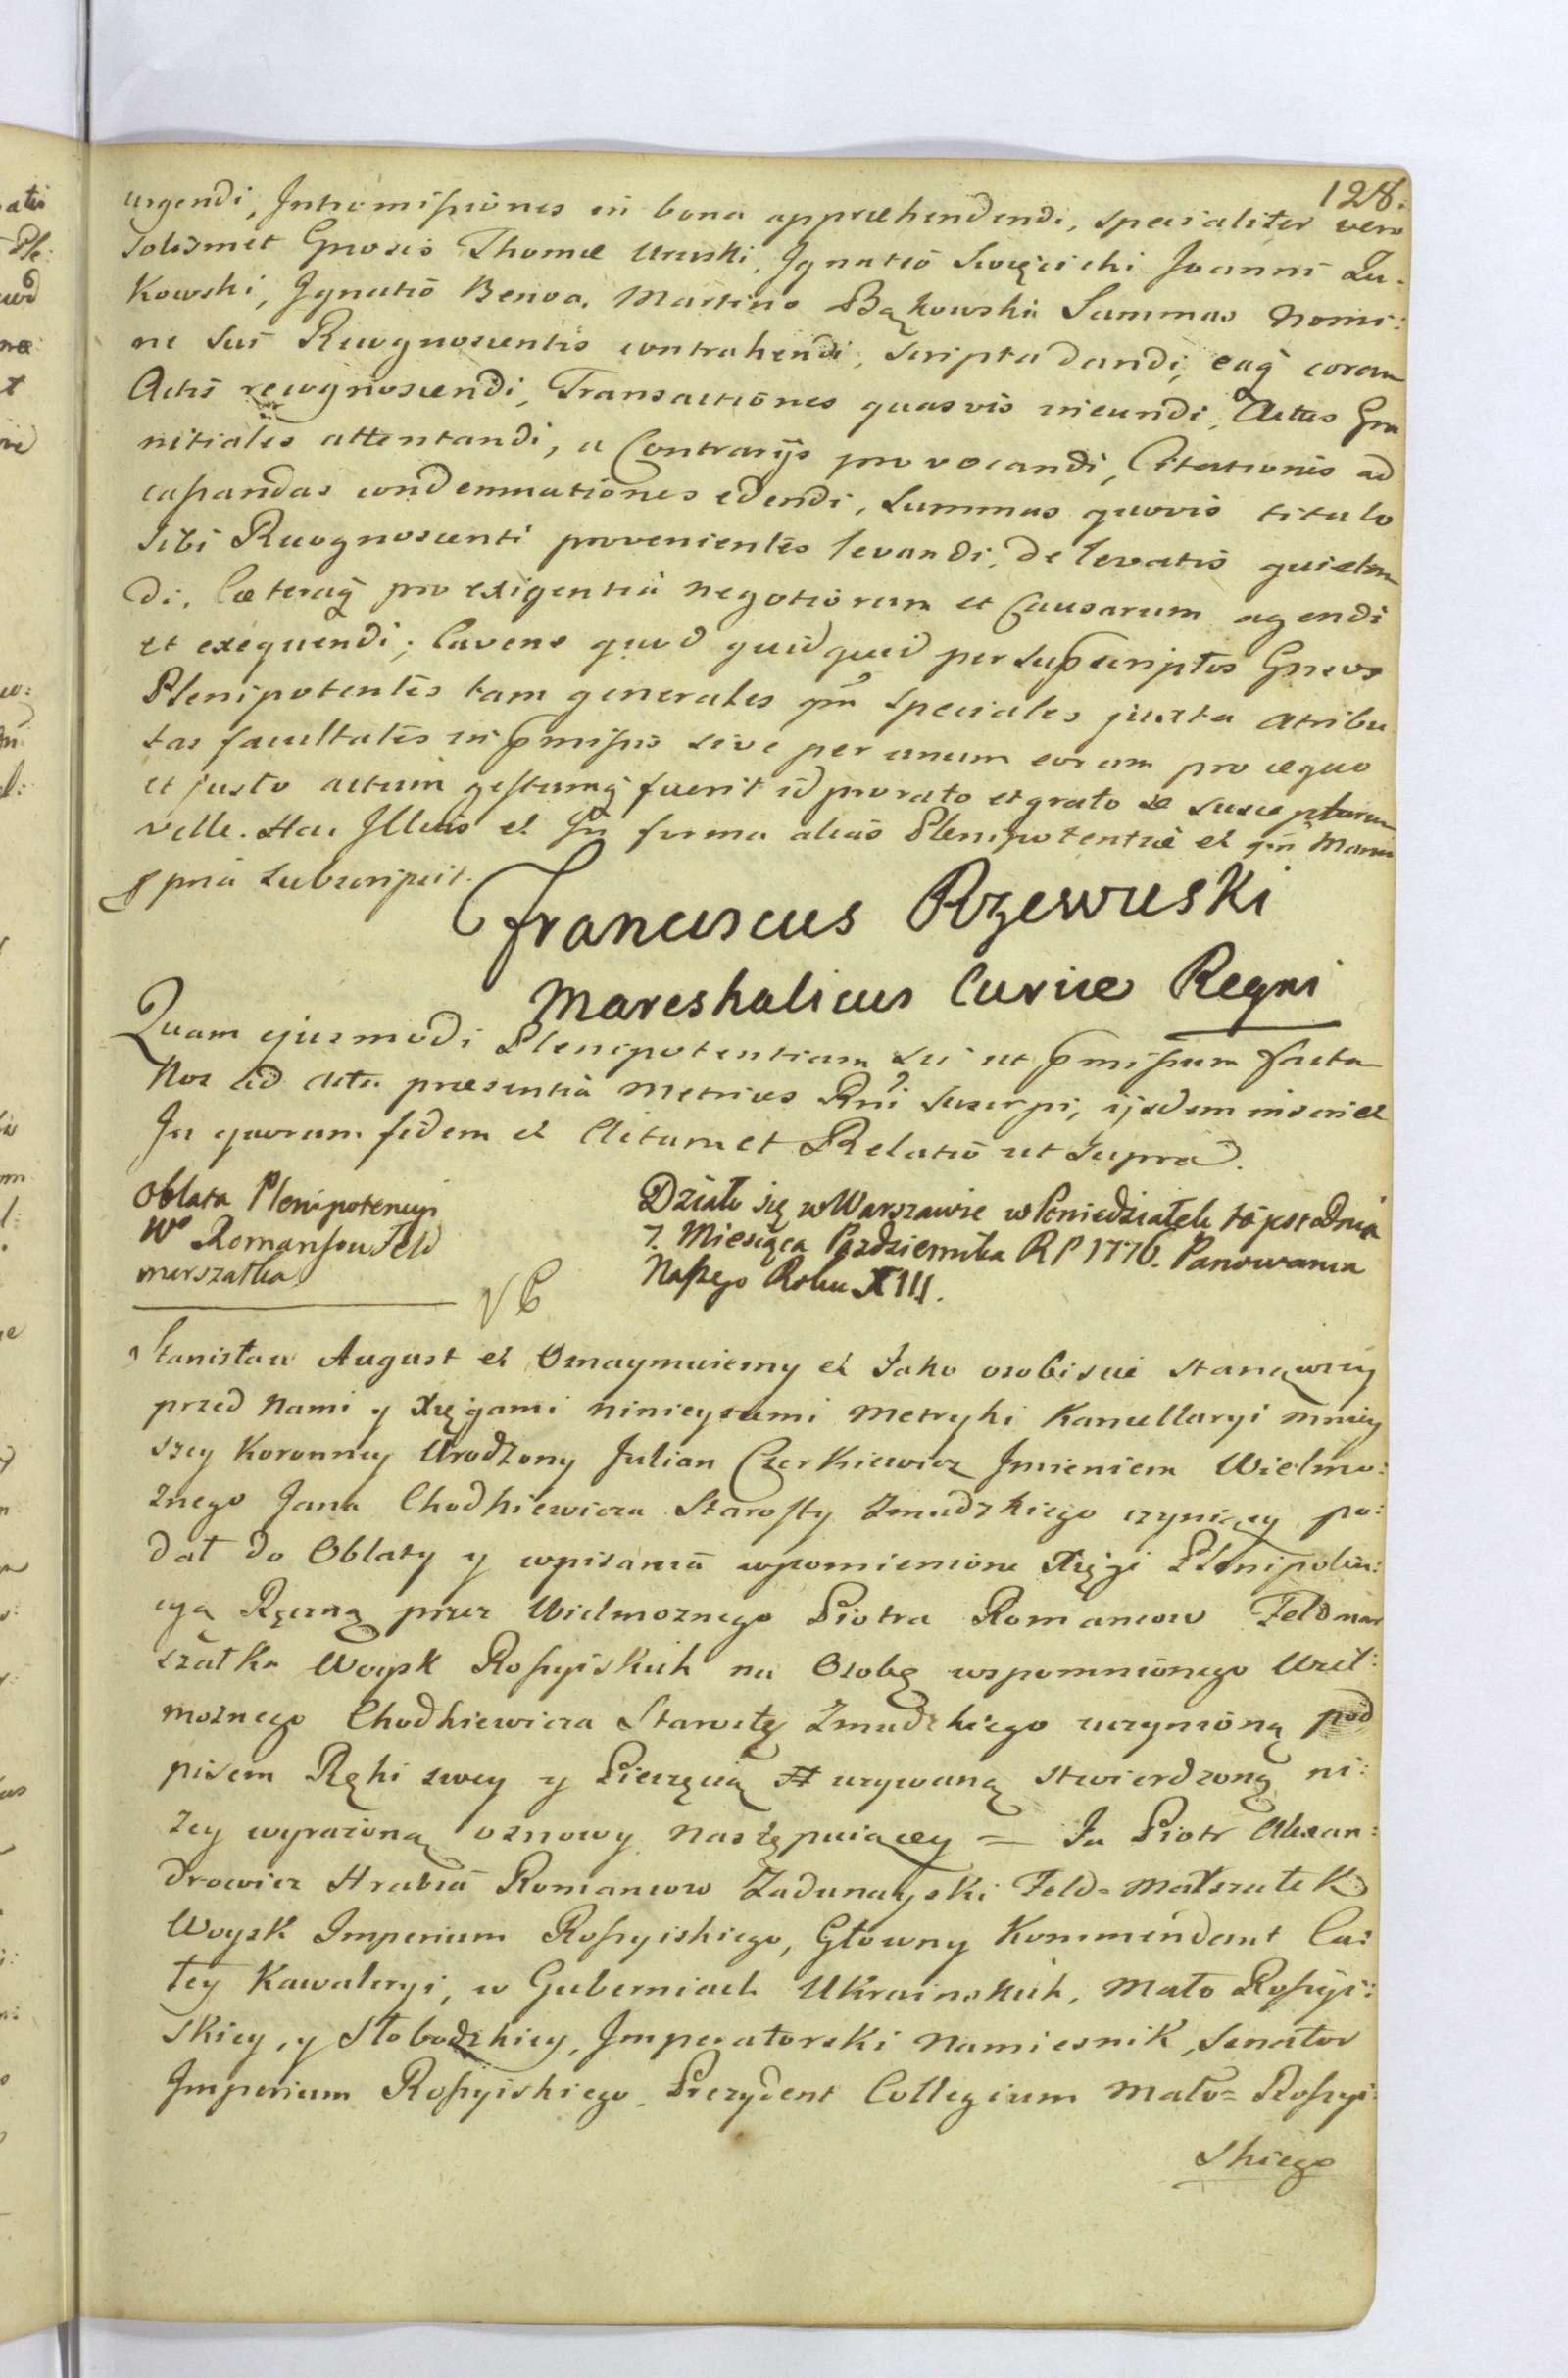 128.
urgendi, Intromissiones in bona appræhendendi, specialiter vero
solismet Gnosis Thomæ Uruski, Ignatio Swięcicki Joanni Zu-
kowski, Ignatio Benoa, Martino Bąkowski Summas nomi:
ne sui Recognoscentis contrahendi, scripta dandi, eaq coram
Actis recognoscendi, Transactiones quasvis ineundi, Actus Gra
nitiales attentandi, a Contrarijs provocandi, Citationes ad
cassandas condemnationes edendi, Summas quovis titulo
sibi Recognoscenti provenientes levandi, de levatis quietan
di, Cæteraq pro exigentia negotiorum et Causarum agendi
et exequendi; Cavens quod quidquid per supscriptos Gneros
Plenipotentes tam generales qm speciales juxta atribu
tas facultates in pmissis sive per unum eorum pro æquo
et justo actum gestumq fuerit id pro rato et grato se suscepturum
velle. Hac Illius et In forma alias Plenipotentiæ et qm Manu
ppria subscripsit.
Franciscus Rzewuski
Mareshalicus Curiæ Regni
Quam ejusmodi Plenipotentiam sui ut pmissum facta
Nos ad acta præsentia Metrices Rni suscepi, ijsdem inseri et
In quorum fidem et Actum et Relatio ut supra.
Oblata Plenipotencyi
Wo Romansou Feld
marszałka
Działo się w Warszawie w Poniedziałek to jest Dnia
7. Miesiąca Pazdziernika RP 1776. Panowania
Naszego Roku XIII.
Stanisław August et Oznaymuiemy et Iako osobiscie stanąwszy
przed Nami y Xięgami ninieyszemi Metryki Kancellaryi mniey
szey Koronney Urodzony Julian Czerkiewicz Imieniem Wielmo:
znego Jana Chodkiewicza Starosty Zmudzkiego czyniący po:
dał do Oblaty y wpisania wpomienione Xięgi Plenipoten:
cyą Ręczną przez Wielmoznego Piotra Romancow Feldmar
szałka Woysk Rossyiskich na Osobę wspomnionego Wiel:
moznego Chodkiewicza Starostę Zmudzkiego uczynioną pod
pisem Ręki swey y Pieczęcią uzywaną stwierdzoną ni:
zey wyrazoną osnowy następuiącey = Ia Piotr Alexan:
drowicz Hrabia Romancow Zadunayski Feld=Małszałek
Woysk Imperium Rossyiskiego, Głowny Kommendant Ca:
łey Kawaleryi, w Guberniach Ukrainskich, Mało Rossyi:
skiey, y Słobodzkiey, Imperatorski Namiesnik, Senator
Imperium Rossyiskiego Prezydent Collegium Mało= Rossyi:
skiego